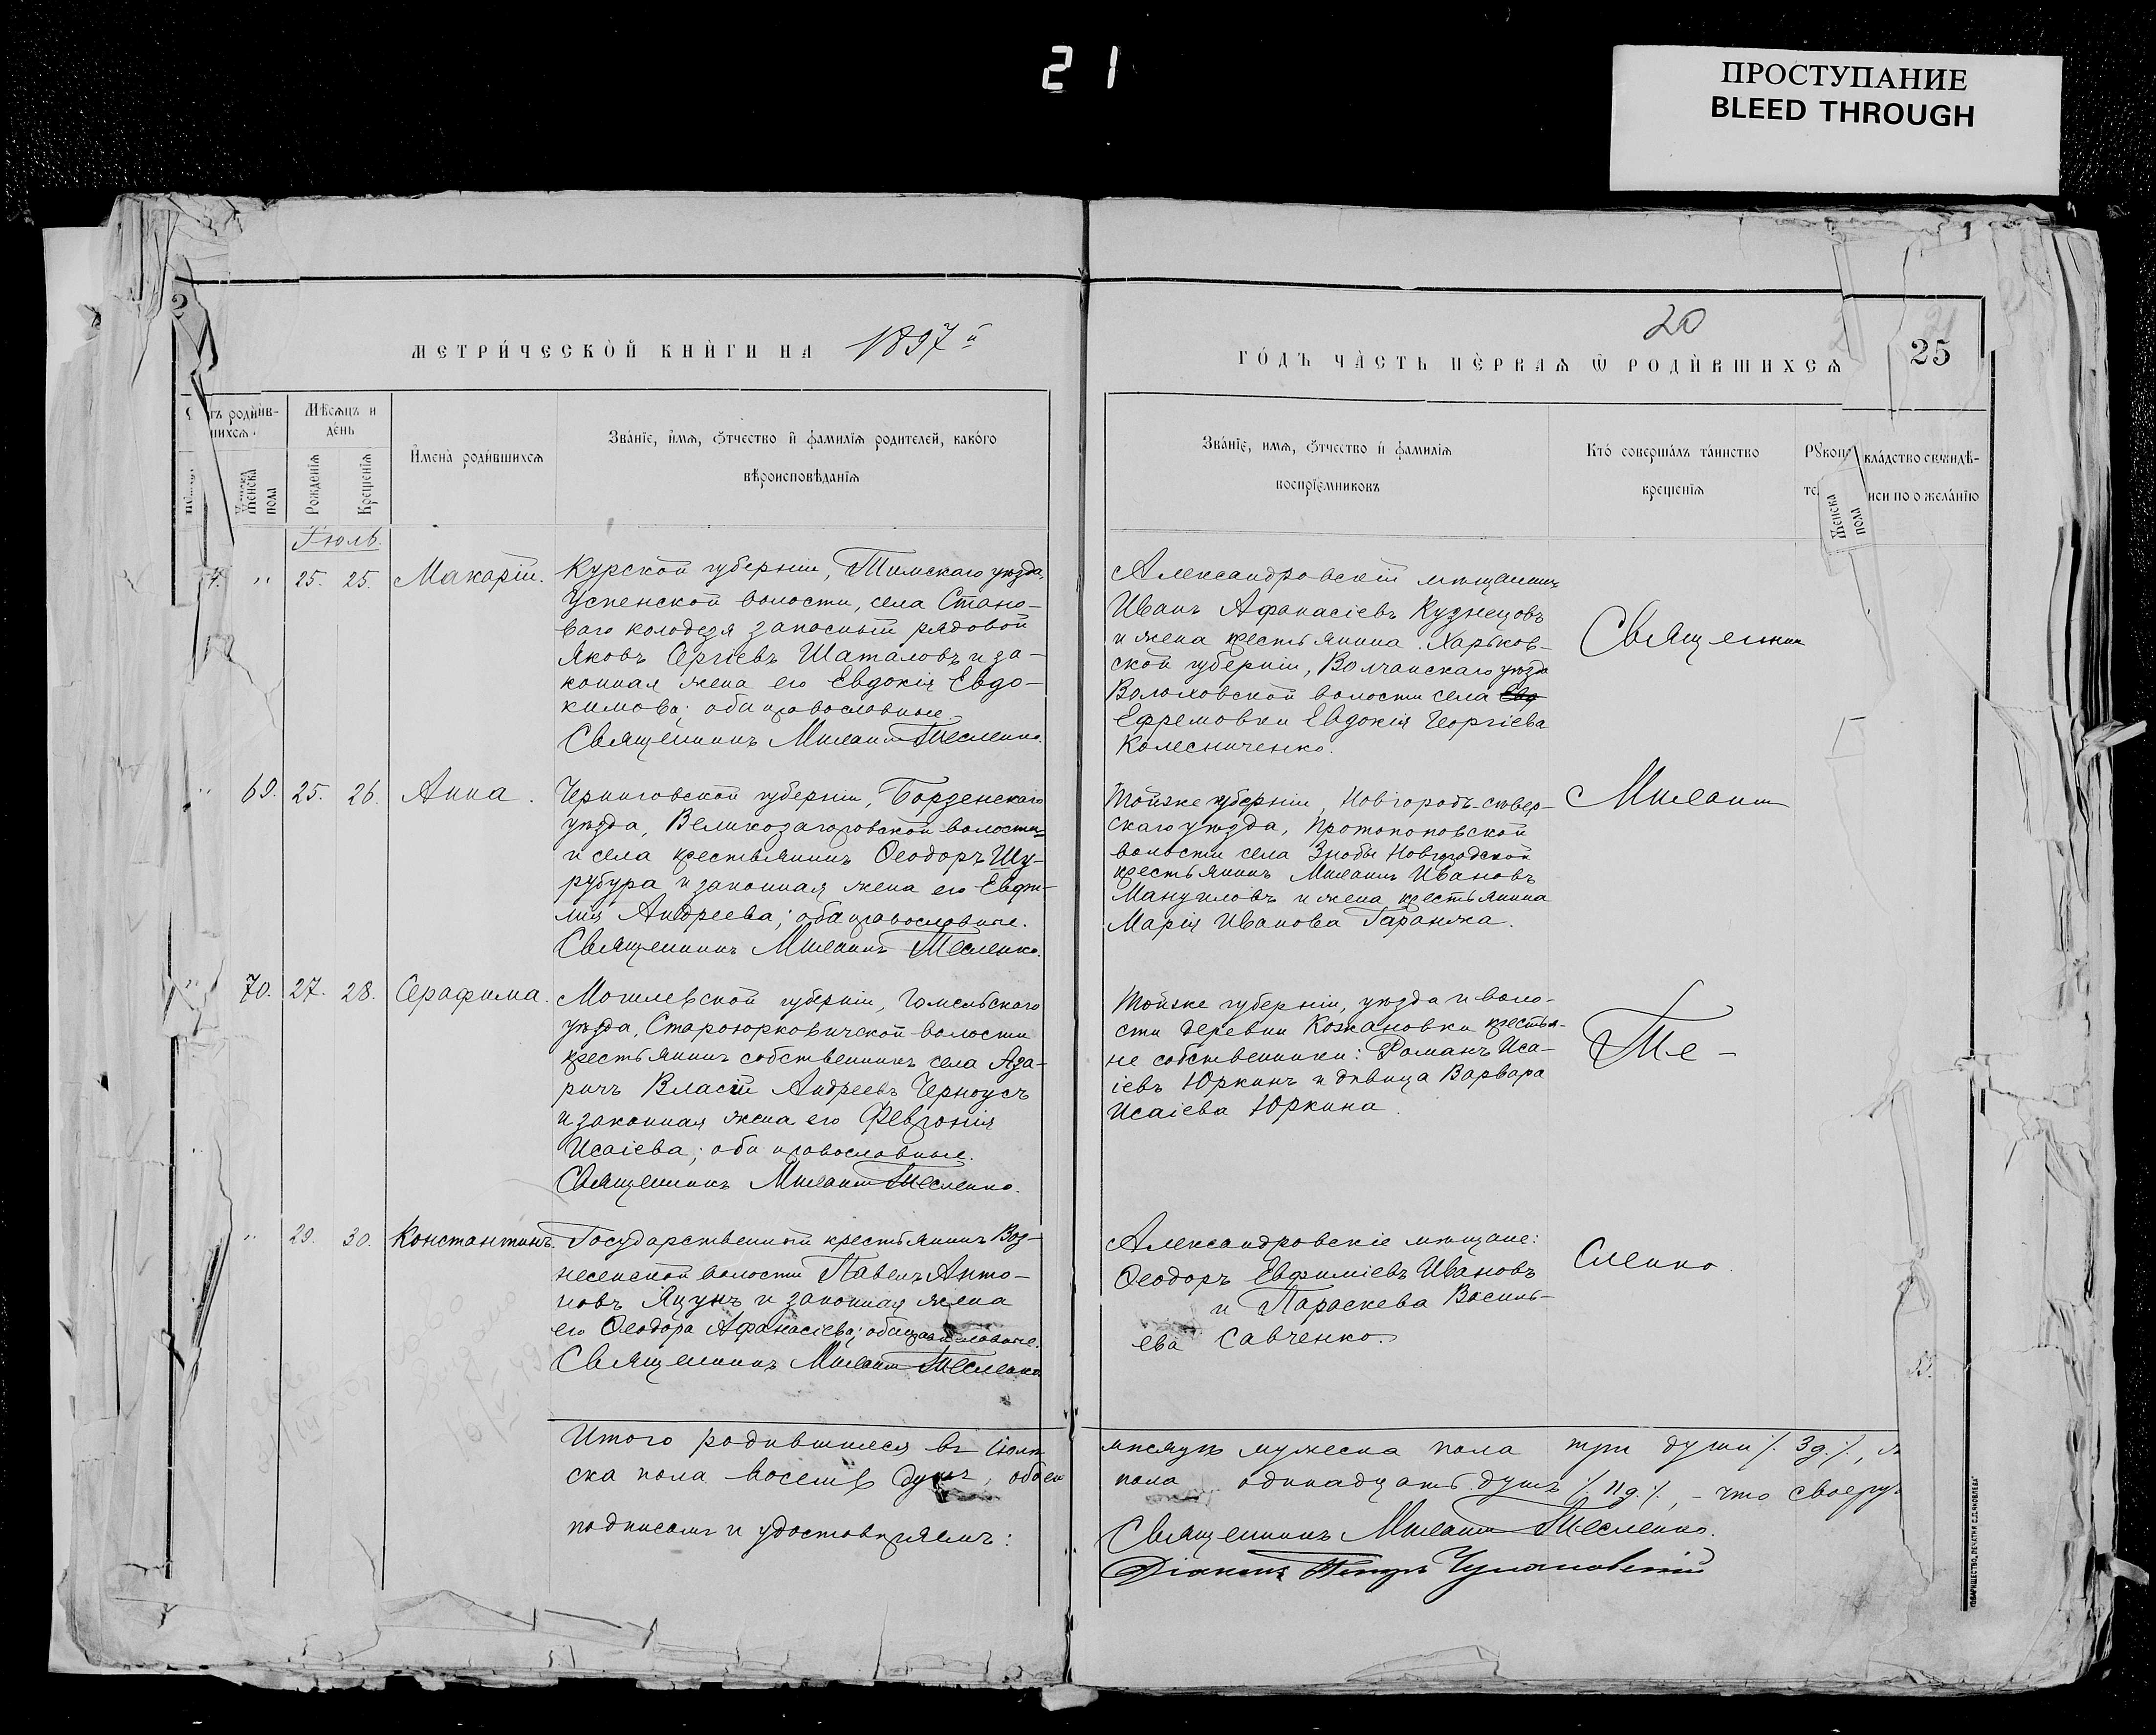 21
ПРОСТУПАНИЕ
BLEED THROUGH
МЕТРИ́ЧЕСКОЙ КНИ́ГИ НА 1897й
ГО́ДЪ ЧА́СТЬ ПЕ́РВАѦ Ѿ РОДИ́ВШИХСѦ
20
25
Мѣсѧцъ и де́нь
Рожденїѧ
Крещенїѧ
Женска пола
Имена̀ роди́вшихсѧ
Зва́нїе, и́мѧ, ѻтчество и фамилїѧ родителей, како́го
вѣроисповѣданїѧ
Зва́нїе, имѧ, ѻтчество и фамилїѧ
воспрїемниковъ
Кто̀ соверша́лъ та́инство
крещенїѧ
Іюль.
" 25. 25. Макарій.
Курской губерніи, Тимскаго уѣзда,
Успенской волости, села Стано-
ваго колодезя запасный рядовой
Яковъ Сергіевъ Шаталовъ и за-
конная жена его Евдокія Евдо-
кимова; оба православные.
Священникъ Михаилъ Тесленко.
Александровскій мѣщанинъ
Иванъ Афанасіевъ Кузнецовъ
и жена крестьянина Харьков-
ской губерніи, Волчанскаго уѣзда
Волоховской волости села
Ефремовки Евдокія Георгіева
Колесниченко.
Священникъ
" 69. 25. 26. Анна.
Черниговской губерніи, Борзенскаго
уѣзда, Великозагоровской волости
и села крестьянинъ Ѳеодоръ Шу-
рубура и законная жена его Евфи-
мія Андреева; оба православные.
Священникъ Михаилъ Тесленко.
Тойже губерніи, Новгородъ-сѣвер-
скаго уѣзда, Протопоповской
волости села Знобы Новгородской
крестьянинъ Михаилъ Ивановъ
Мануиловъ и жена крестьянина
Марія Иванова Гаранжа.
Михаилъ
" 70. 27. 28. Серафима.
Могилевской губерніи, Гомельскаго
уѣзда, Староюрковичской волости
крестьянинъ собственникъ села Аза-
ричъ Власій Андреевъ Черноусъ
и законная жена его Февронія
Исаіева; оба православные.
Священникъ Михаилъ Тесленко.
Тойже губерніи, уѣзда и воло-
сти деревни Кожановки крестья-
не собственники: Романъ Иса-
іевъ Юркинъ и дѣвица Варвара
Исаіева Юркина.
Те-
" 29. 30. Константинъ.
Государственный крестьянинъ Воз-
несенской волости Павелъ Анто-
новъ Яцунъ и законная жена
его Ѳеодора Афанасіева; оба православные.
Священникъ Михаилъ Тесленко
Александровскіе мѣщане:
Ѳеодоръ Евфиміевъ Ивановъ
и Параскева Василь-
ева Савченко.
сленко.
Итого родившихся въ іюлѣ мѣсяцѣ мужеска пола три души /. 3 д. /.,
ска пола восемь душъ, обоего пола одинадцать душъ /. 11 д. /., - что своеру-
подписомъ и удостовѣряемъ:
Священникъ Михаилъ Тесленко.
Діаконъ Петръ